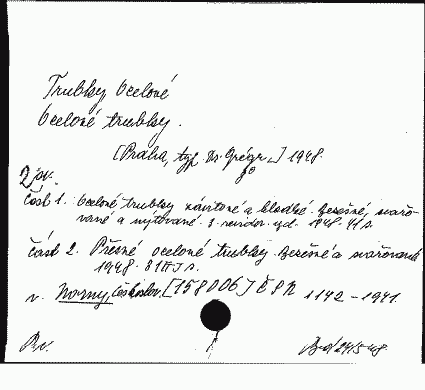 Trubky ocelové
Ocelové trubky.
[Praha, typ. Dr. Grégr] 1948.
2 sv.
Část 1. Ocelové trubky závitové a hladké bezešvé, svařo-
vané a nýtované. 3. revidov. vyd. 1948. 41 s.
část 2. Přesné ocelové trubky bezešvé a svařované
1948. 31 s.
v. Normy, Českoslov. [158006] ČSN 1142-1941.
Rv.